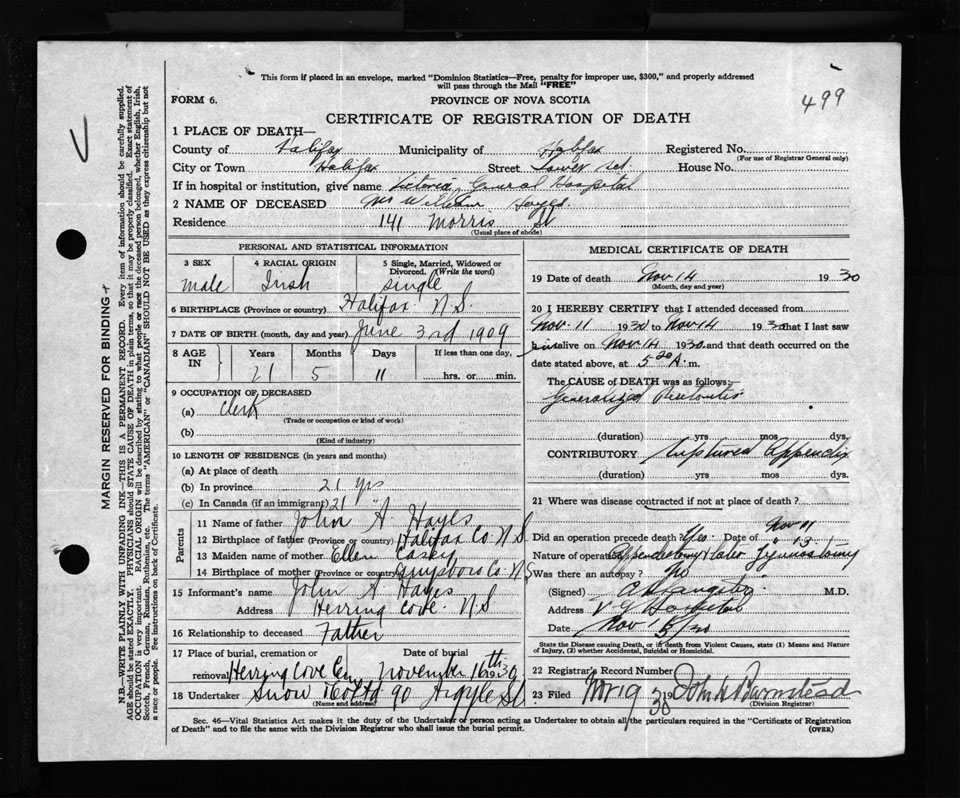 This form if placed in an envelope, marked "Dominion Statistics—Free, penalty for improper use, $300," and properly addressed
will pass through the Mail "FREE"
499
FORM 6.
PROVINCE OF NOVA SCOTIA
CERTIFICATE OF REGISTRATION OF DEATH
1 PLACE OF DEATH—
County of Halifax Municipality of Halifax Registered No.
(For use of Registrar General only)
City or Town Halifax Street Tower Rd. House No.
If in hospital or institution, give name Victoria General Hospital
2 NAME OF DECEASED Mr William Hayes
Residence 141 Morris St
(Usual place of abode)
PERSONAL AND STATISTICAL INFORMATION
3 SEX 4 RACIAL ORIGIN 5 Single, Married, Widowed or
Divorced. (Write the word)
male Irish single
6 BIRTHPLACE (Province or country) Halifax N.S.
7 DATE OF BIRTH (month, day and year) June 3rd 1909
8 AGE IN Years Months Days If less than one day,
21 5 11 hrs. or min.
9 OCCUPATION OF DECEASED
(a) Clerk
(Trade or occupation or kind of work)
(b)
(Kind of industry)
10 LENGTH OF RESIDENCE (in years and months)
(a) At place of death
(b) In province 21 yrs
(c) In Canada (if an immigrant) 21 "
Parents
11 Name of father John A Hayes
12 Birthplace of father (Province or country) Halifax Co N.S.
13 Maiden name of mother Ellen Casey
14 Birthplace of mother (Province or country) Guysboro Co. N.S
15 Informant's name John A Hayes
Address Herring Cove N.S
16 Relationship to deceased Father
17 Place of burial, cremation or Date of burial
removal Herring Cove Cem November 16th 1930
18 Undertaker Snow & Co Ltd 90 Argyle St
(Name and address)
MEDICAL CERTIFICATE OF DEATH
19 Date of death Nov 14 1930
(Month, day and year)
20 I HEREBY CERTIFY that I attended deceased from
Nov. 11 1930 to Nov 14 1930 that I last saw
him alive on Nov 14 1930 and that death occurred on the
date stated above, at 5 20 A. m.
The CAUSE of DEATH was as follows:—
Generalized Peritonitis
(duration) yrs mos dys.
CONTRIBUTORY Ruptured Appendix
(duration) yrs. mos. dys.
21 Where was disease contracted if not at place of death?
Did an operation precede death? Yes. Date of Nov 11
" 13.
Nature of operation Appendectomy & later Jejunostomy
Was there an autopsy? No
(Signed) M.D.
Address V G Hospital
Date Nov 15/30
State the Disease causing Death, or in death from Violent Causes, state (1) Means and
Nature of Injury, (2) whether Accidental, Suicidal or Homicidal.
22 Registrar's Record Number
23 Filed Nov 19 1930 John Barnstead
(Division Registrar)
Sec. 46—Vital Statistics Act makes it the duty of the Undertaker or person acting as Undertaker to obtain all the particulars required in the "Certificate of Registration
of Death" and to file the same with the Division Registrar who shall issue the burial permit. (OVER)
MARGIN RESERVED FOR BINDING
N.B.—WRITE PLAINLY WITH UNFADING INK—THIS IS A PERMANENT RECORD. Every item of information should be carefully supplied.
AGE should be stated EXACTLY. PHYSICIANS should STATE CAUSE OF DEATH in plain terms, so that it may be properly classified. Exact statement of
OCCUPATION is very important. RACIAL ORIGIN will be described by stating to what people or race the deceased person belonged, whether English, Irish,
Scotch, French, German, Russian, Ruthenian, etc. The terms "AMERICAN" or "CANADIAN" SHOULD NOT BE USED as they express citizenship but not
a race or people. See instructions on back of Certificate.